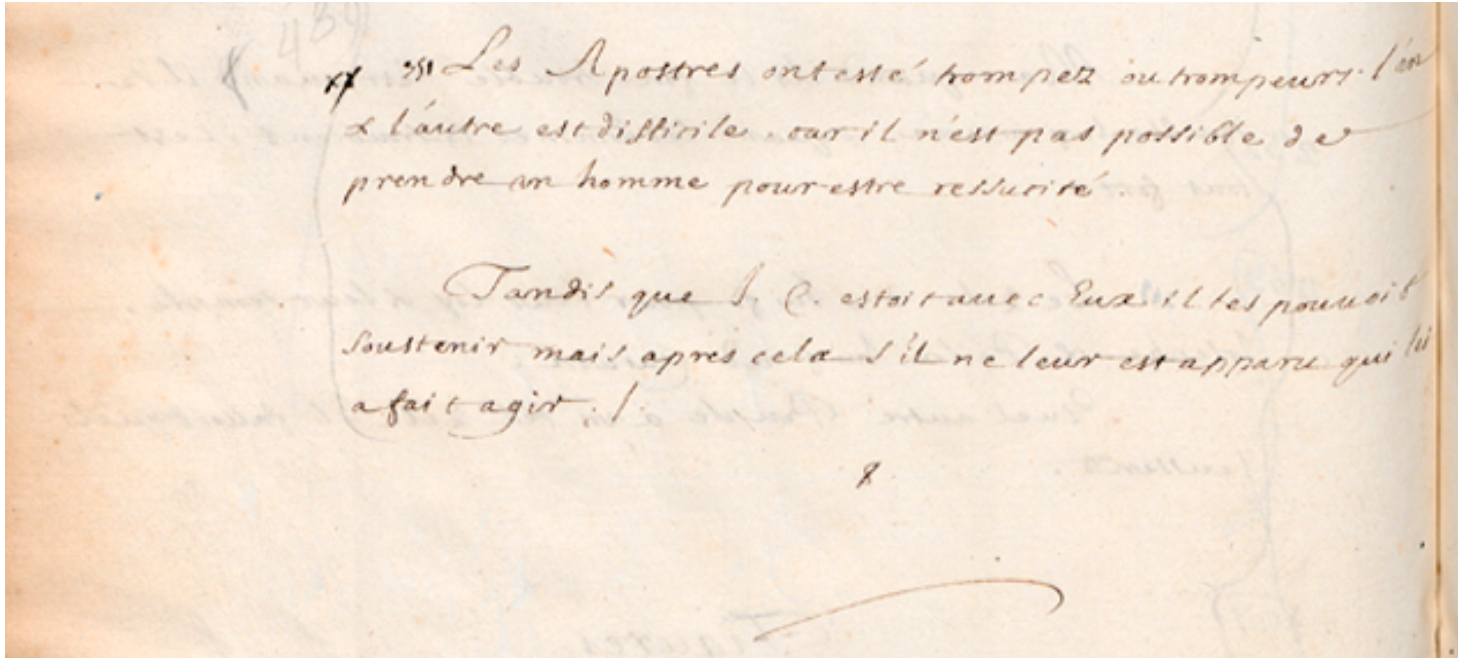 Les Apostres ont esté trompez ou trompeurs. l'un
& l'autre est difficile. car il n'est pas possible de
prendre un homme pour estre ressucité
Tandis que J. C. estoit avec Eux il les pouvoit
soustenir mais apres cela s'il ne leur est apparu qui les
a fait agir. /